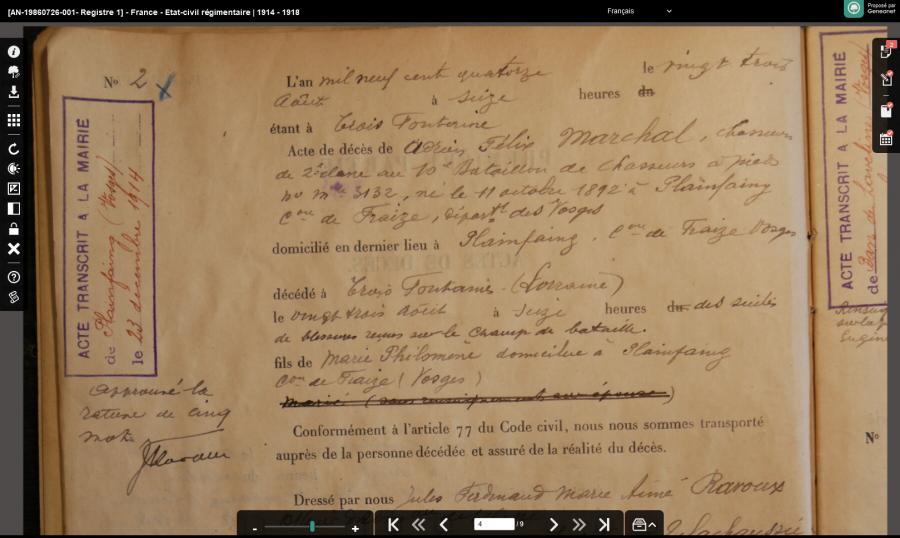 [AN-19860726-001- Registre 1] - France - Etat-civil régimentaire | 1914 - 1918
Français
Proposé par
Geneanet
ACTE TRANSCRIT A LA MAIRIE
de Plainfaing (Vosges)
le 23 décembre 1914
No 2
L'an mil neuf cent quatorze le vingt trois
Août à seize heures du
étant à Trois Fontaine
Acte de décès de Félix Marchal, chasseur
de 2e classe au 10e Bataillon de chasseurs à pied
no mle 3132, né le 11 octobre 1892 à Plainfaing
Con de Fraize, départt des Vosges
domicilié en dernier lieu à Plainfaing, Con de Fraize Vosges
décédé à Trois Fontaines (Lorraine)
le vingt trois août à seize heures du des suites
de blessures reçues sur le champ de bataille.
fils de Marie Philomène domiciliée à Plainfaing
Con de Fraize (Vosges)
marié (sans renseignements sur épouse)
Approuvé la
rature de cinq
mots
Conformément à l'article 77 du Code civil, nous nous sommes transporté
auprès de la personne décédée et assuré de la réalité du décès.
Dressé par nous Jules Ferdinand Marie Aimé Ravoux
ACTE TRANSCRIT A LA MAIRIE
de
No
4 / 9